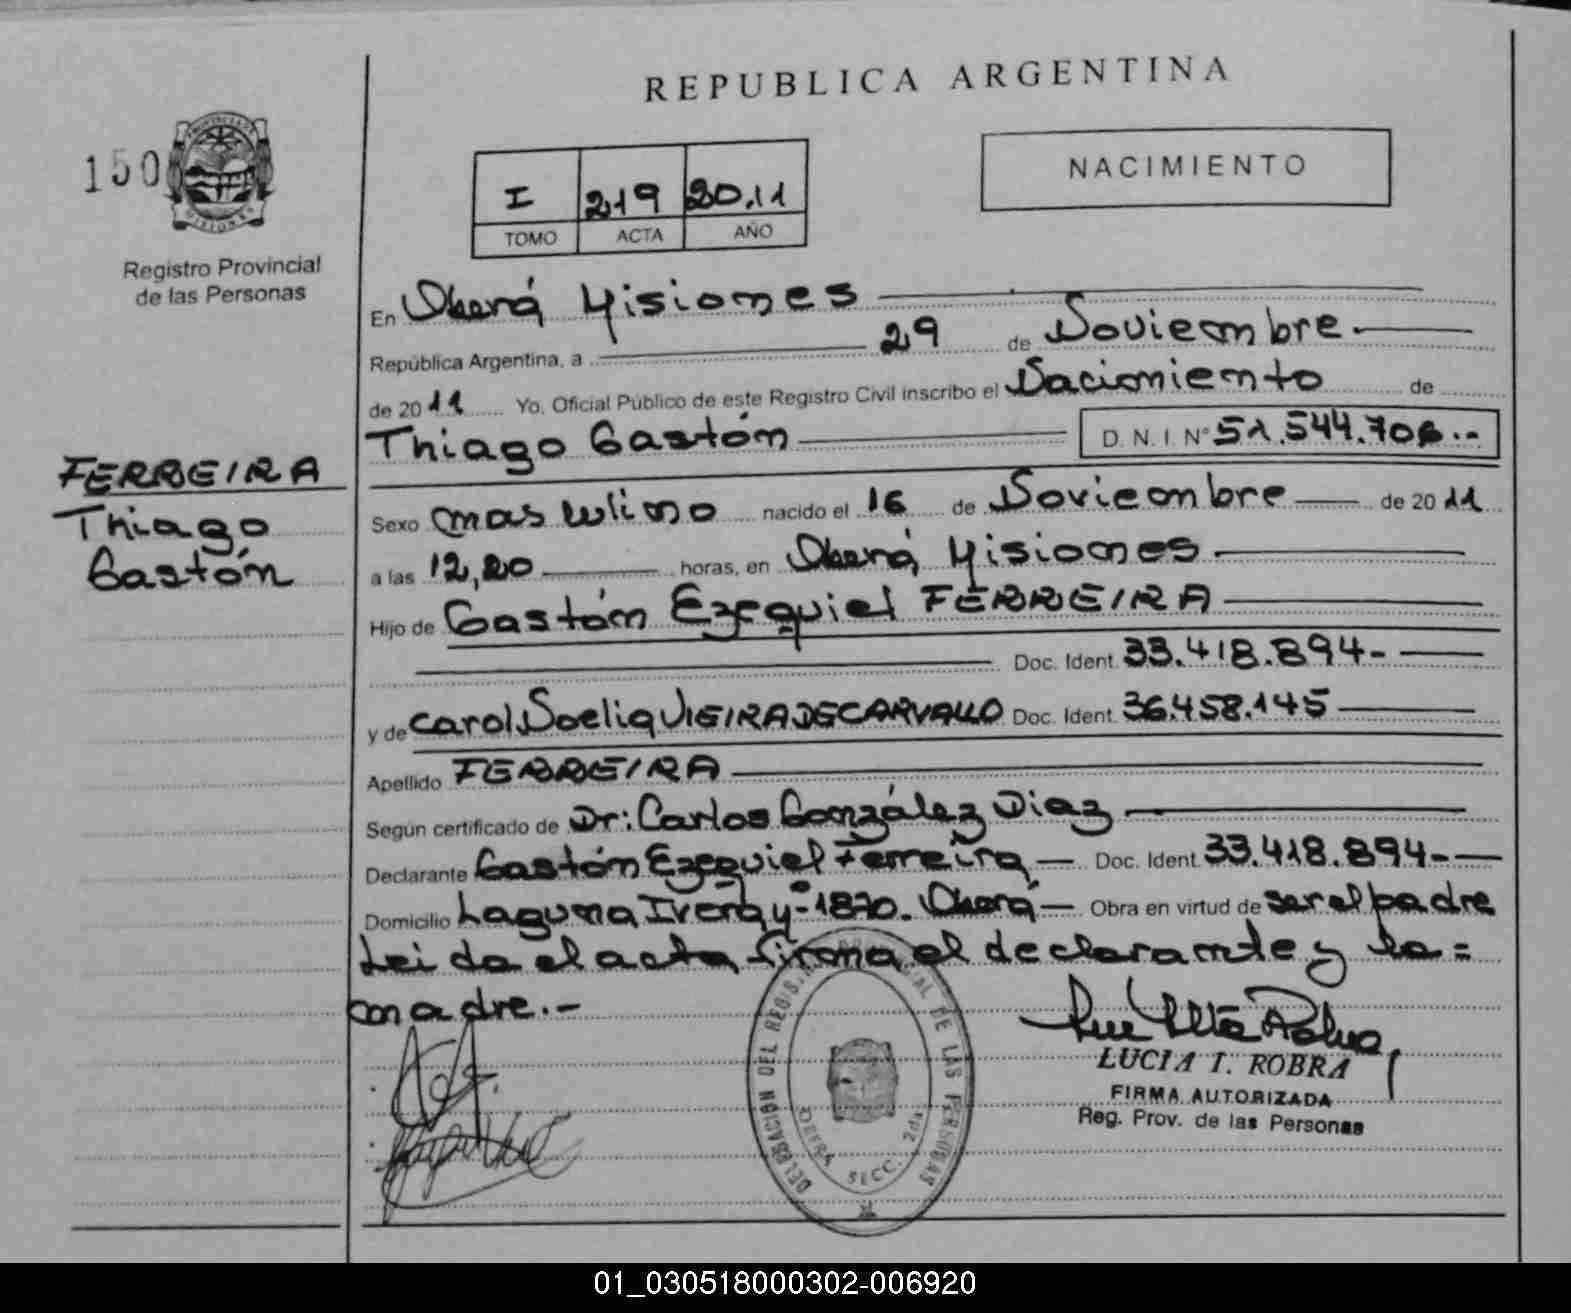 REPUBLICA ARGENTINA
150
PROVINCIA DE MISIONES
Registro Provincial
de las Personas
I 219 2011
TOMO ACTA AÑO
NACIMIENTO
FERREIRA
Thiago
Gastón
En Oberá Misiones
República Argentina, a 29 de Noviembre.
de 2011 Yo, Oficial Público de este Registro Civil inscribo el Nacimiento de
Thiago Gastón D. N. I. N° 51.544.706.-
Sexo masculino nacido el 16 de Noviembre de 2011
a las 12,20 horas, en Oberá, Misiones
Hijo de Gastón Ezequiel FERREIRA
Doc. Ident. 33.418.894-
y de Carol Noelia VIEIRA DE CARVALLO Doc. Ident. 36.458.145
Apellido FERREIRA
Según certificado de Dr: Carlos González Diaz
Declarante Gastón Ezequiel Ferreira Doc. Ident. 33.418.894-
Domicilio Laguna Iverá y-° 1870. Oberá Obra en virtud de ser el padre
Leida el acta firma el declarante y la =
madre.-
DELEGACION DEL REGISTRO PROVINCIAL DE LAS PERSONAS
OBERA SECC. 2da.
LUCIA I. ROBRA
FIRMA AUTORIZADA
Reg. Prov. de las Personas
01_030518000302-006920